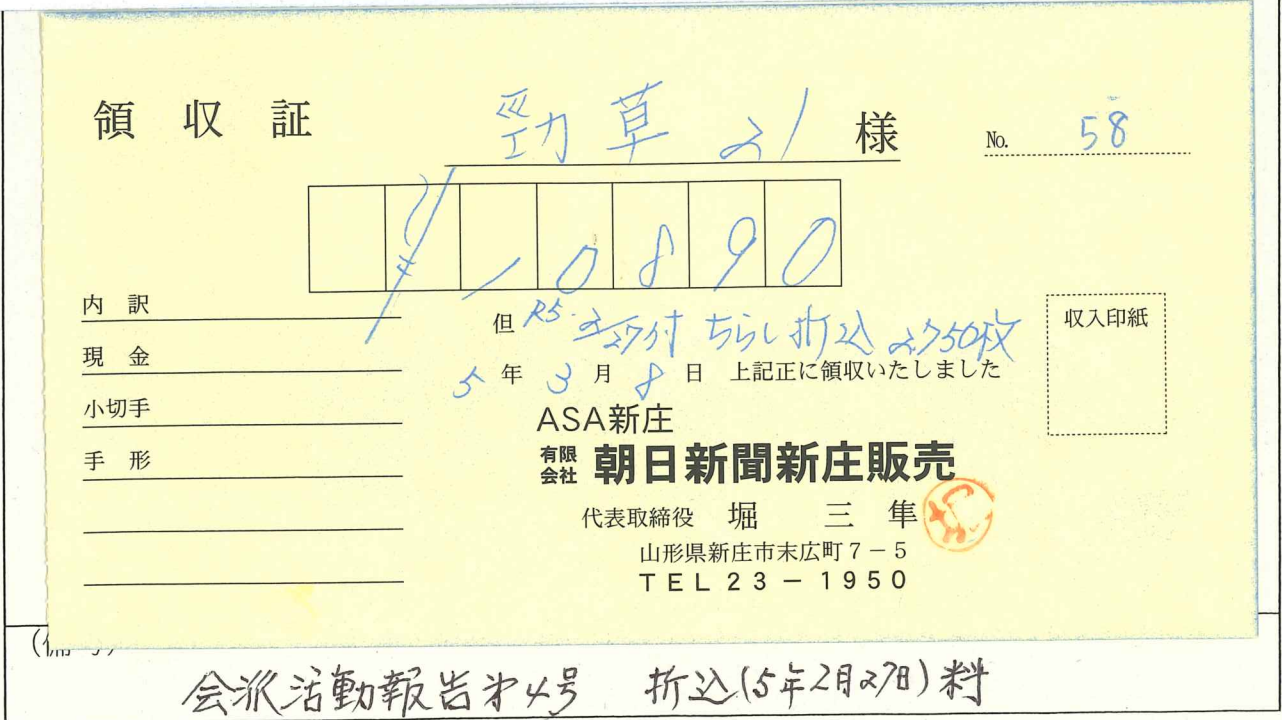 領収証 勁草21 様 No. 58
¥10890
内訳
現金
小切手
手形
但 R5.2/27付 ちらし折込 2750枚
収入印紙
5年3月8日 上記正に領収いたしました
ASA新庄
有限会社 朝日新聞新庄販売
代表取締役 堀 三隼
山形県新庄市末広町7-5
TEL23-1950
会派活動報告第4号 折込(5年2月27日)料